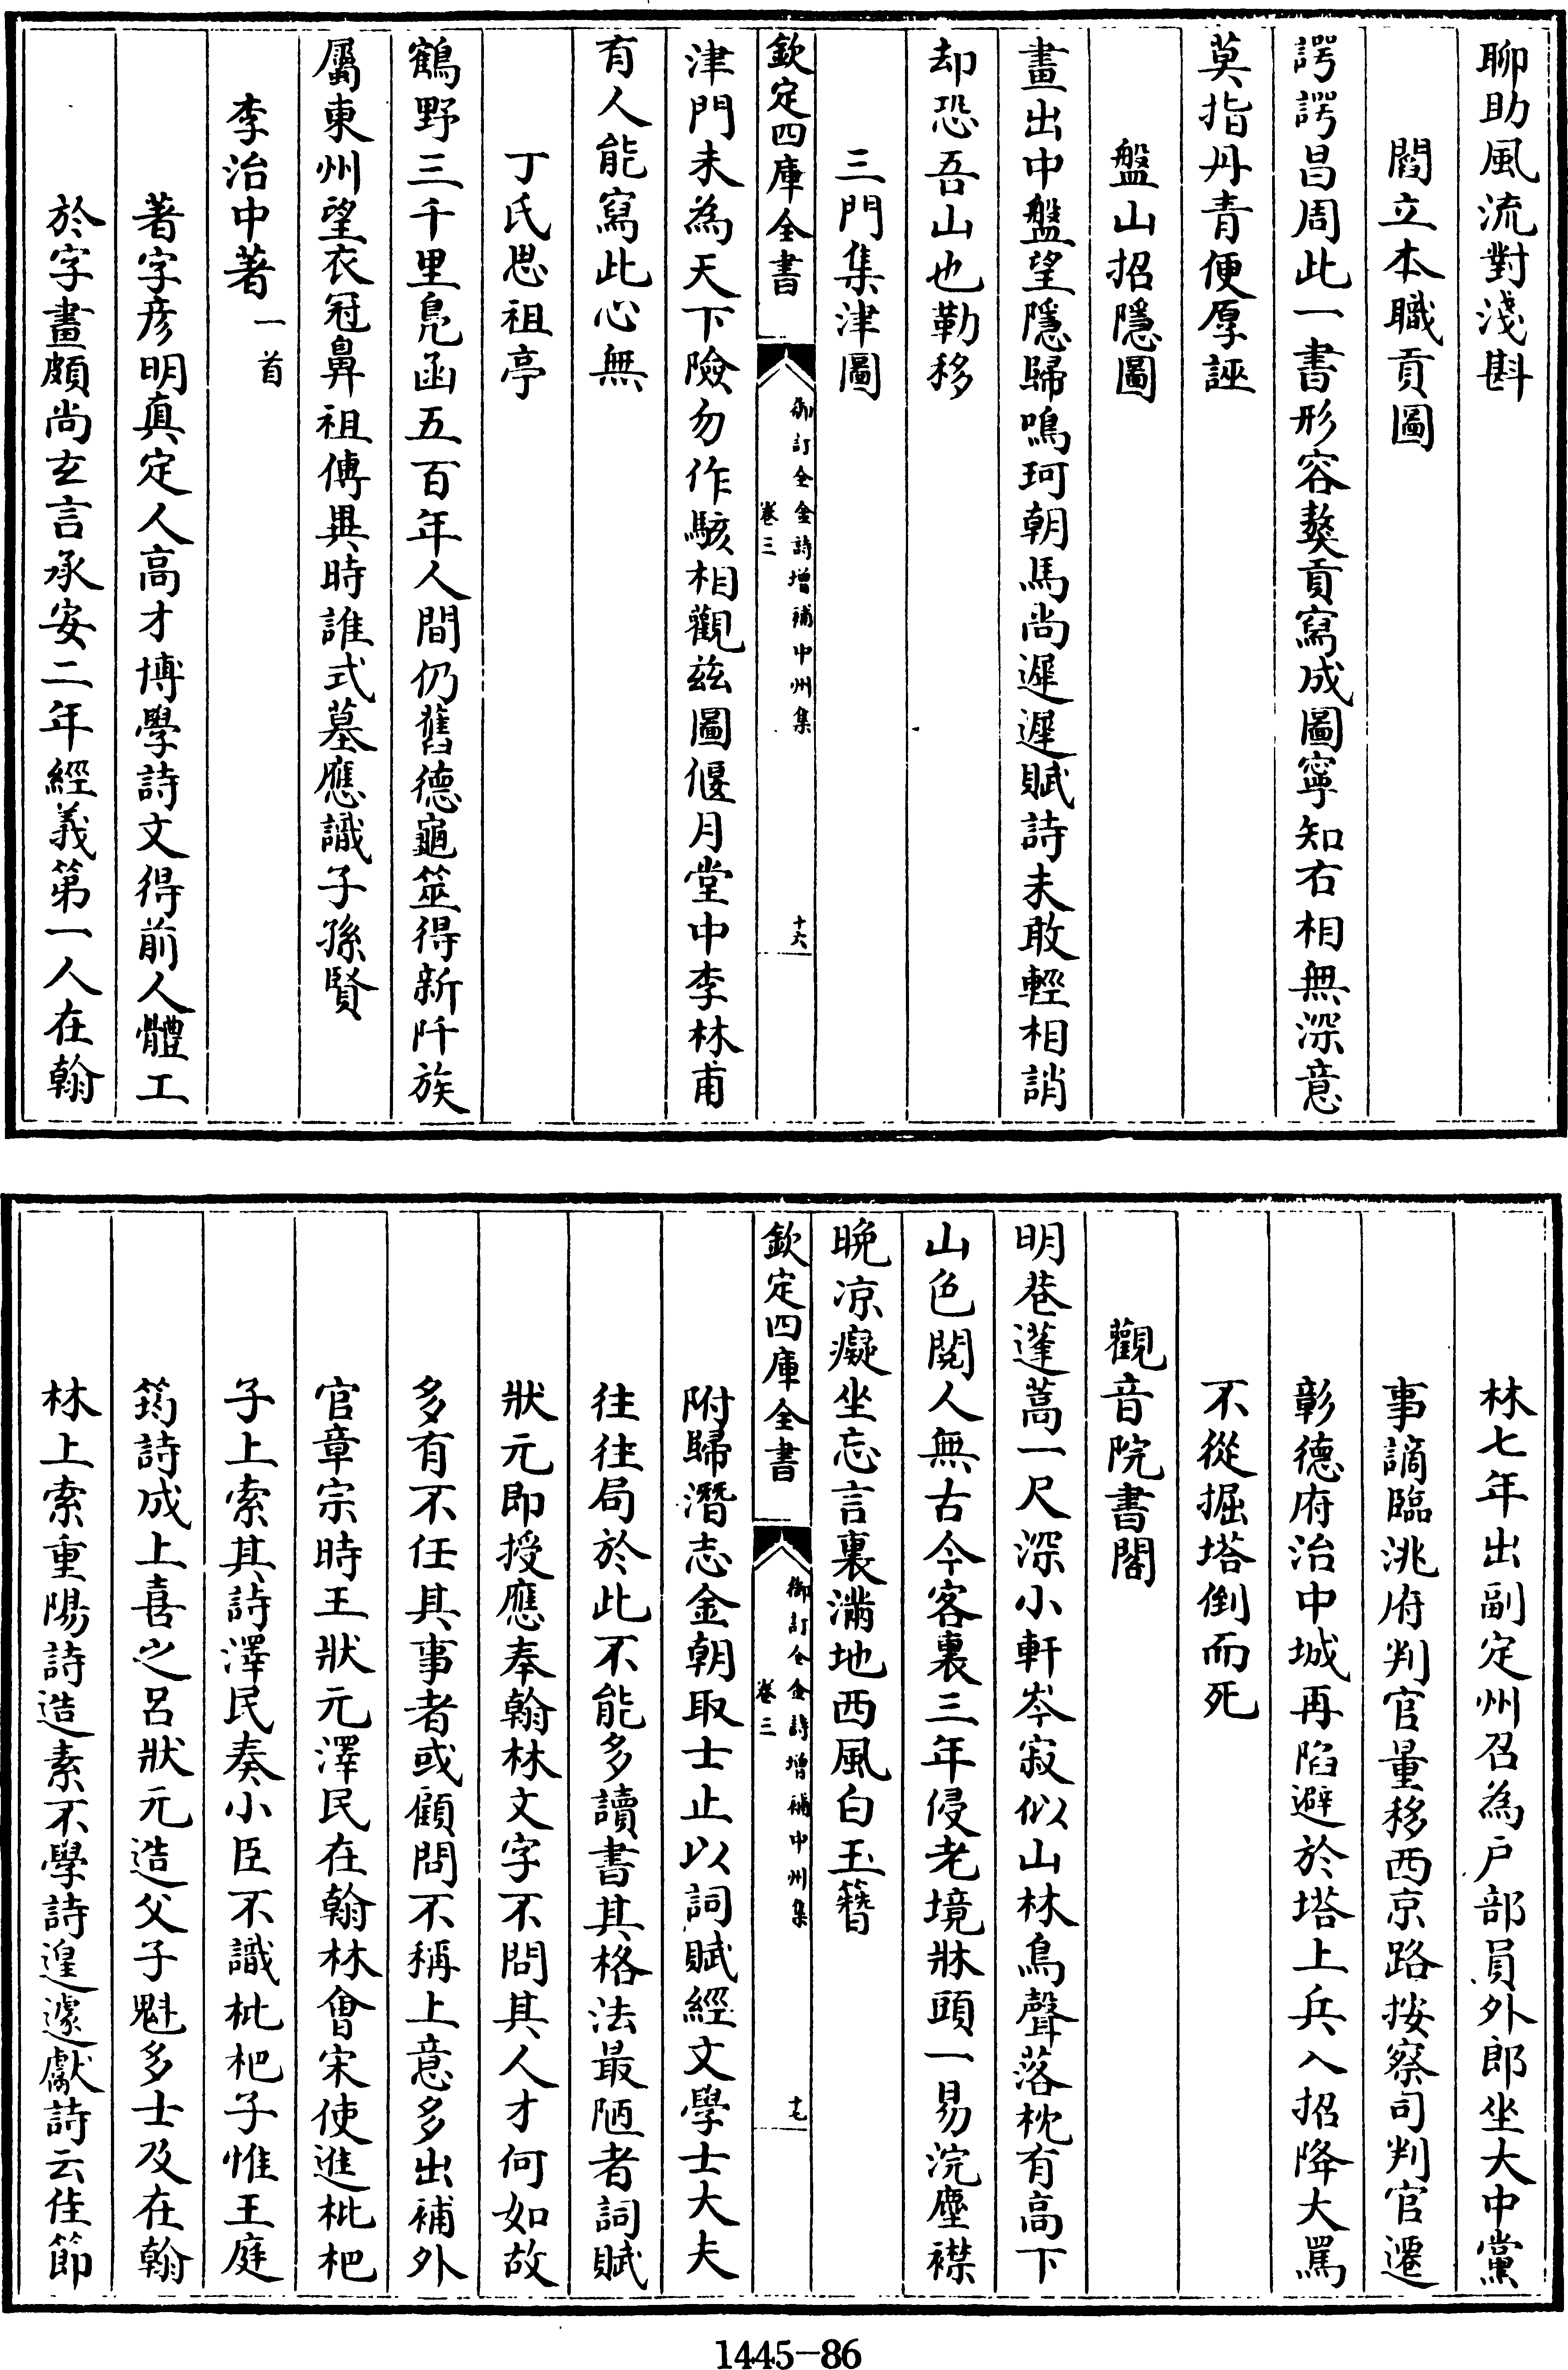 聊助風流對淺斟
閻立本職貢圖
諤諤昌周此一書形容獒貢寫成圖寧知右相無深意
莫指丹青便厚誣
盤山招隱圖
畫出中盤望隱歸鳴珂朝馬尚遲遲賦詩未敢輕相誚
却恐吾山也勒移
三門集津圖
欽定四庫全書
御訂全金詩增補中州集
卷三
十六
津門未為天下險勿作駭相觀兹圖偃月堂中李林甫
有人能寫此心無
丁氏思祖亭
鶴野三千里鳬函五百年人間仍舊德龜筮得新阡族
屬東州望衣冠鼻祖傳異時誰式墓應識子孫賢
李治中著一首
著字彦明真定人高才博學詩文得前人體工
於字畫頗尚玄言承安二年經義第一人在翰
林七年出副定州召為户部員外郎坐大中黨
事謫臨洮府判官量移西京路按察司判官遷
彰德府治中城再陷避於塔上兵入招降大罵
不從掘塔倒而死
觀音院書閣
明巷蓬蒿一尺深小軒岑寂似山林鳥聲落枕有高下
山色閱人無古今客裏三年侵老境牀頭一易浣塵襟
晚凉癡坐忘言裏滿地西風白玉簪
欽定四庫全書
御訂全金詩增補中州集
卷三
十七
附歸潛志金朝取士止以詞賦經文學士大夫
往往局於此不能多讀書其格法最陋者詞賦
狀元即授應奉翰林文字不問其人才何如故
多有不任其事者或顧問不稱上意多出補外
官章宗時王狀元澤民在翰林會宋使進枇杷
子上索其詩澤民奏小臣不識枇杷子惟王庭
筠詩成上喜之呂狀元造父子魁多士及在翰
林上索重陽詩造素不學詩遑遽獻詩云佳節
1445-86